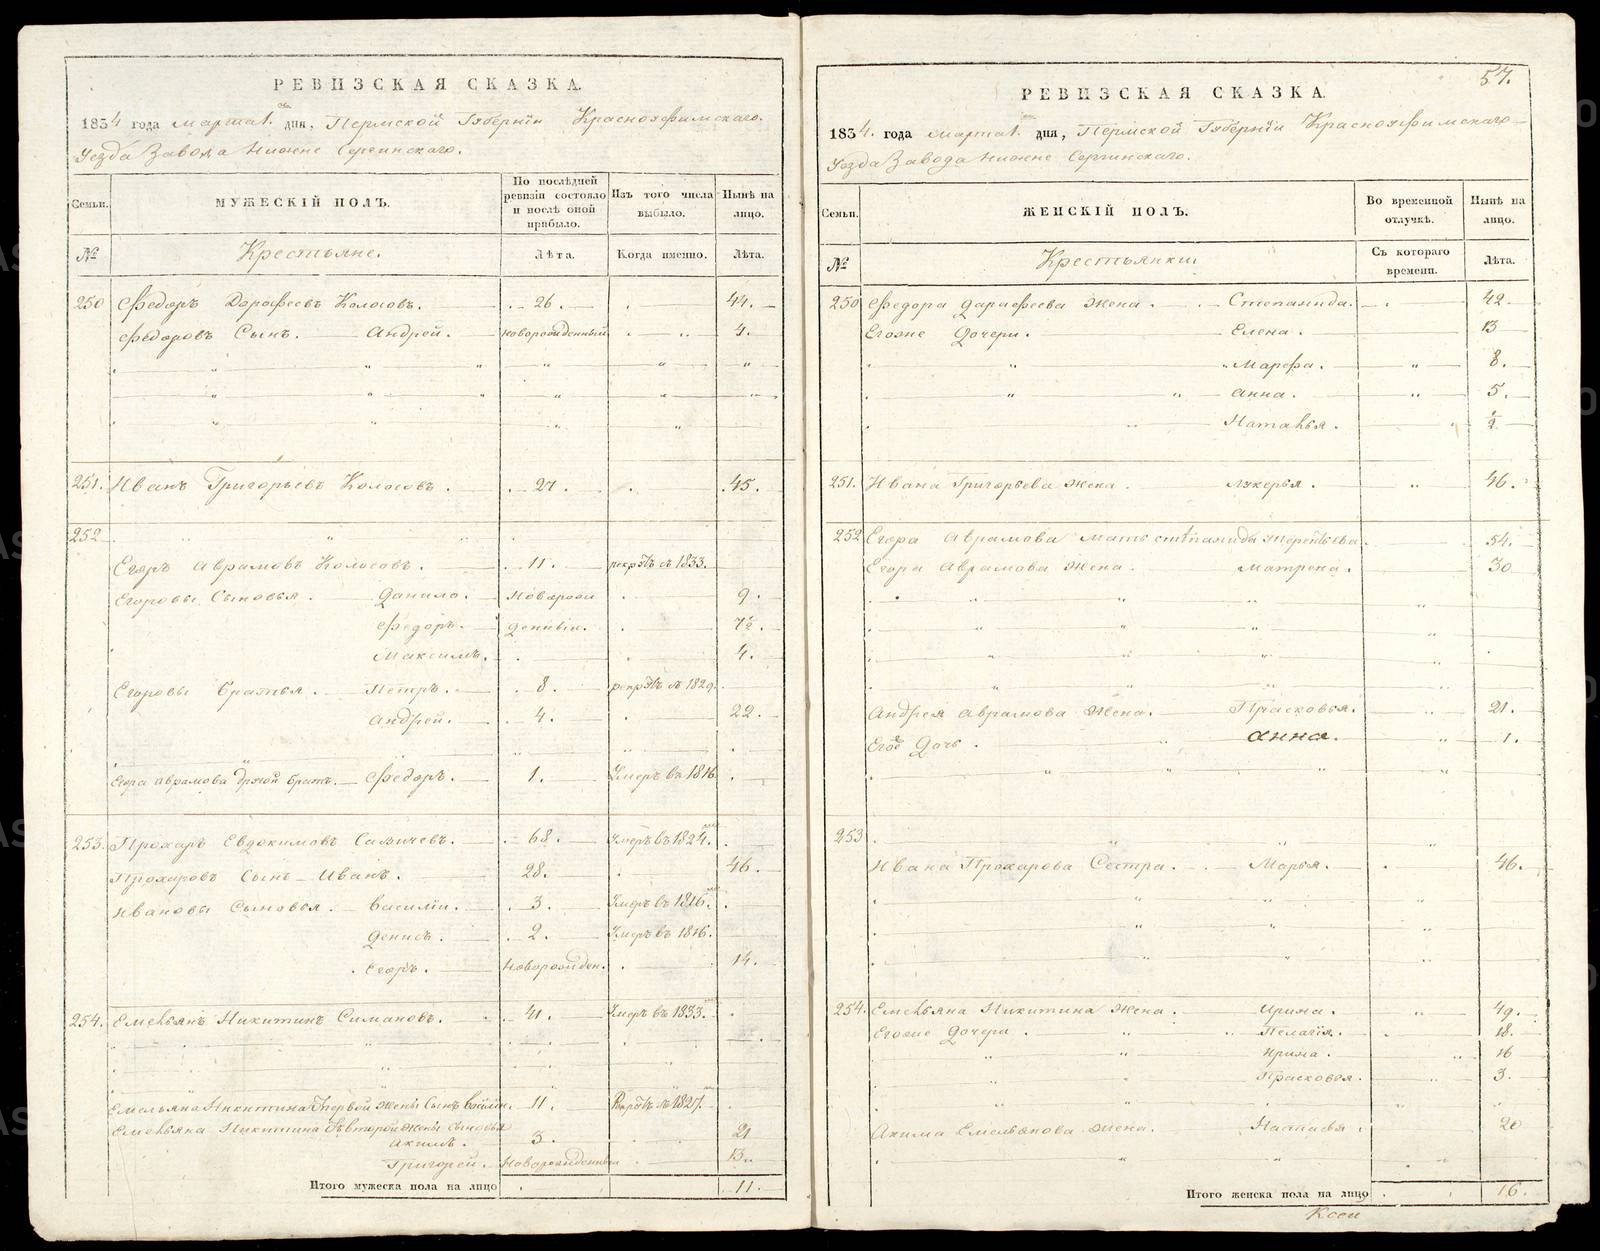 РЕВИЗСКАЯ СКАЗКА.
1834 года марта 1. дня, Пермской Губернїи Красноуфимскаго.
Уезда Завода Нижне Сергинскаго.
Семьи. МУЖЕСКІЙ ПОЛЪ. По послѣдней ревизіи состояло и послѣ оной прибыло. Изъ того числа выбыло. Нынѣ на лицо.
№ Крестьяне. Лѣта. Когда именно. Лѣта.
250 Федоръ Дорофеевъ Колосовъ. 26. 44.
Федоровъ Сынъ. Андрей. новорожденный 4.
251. Иванъ Григорьевъ Колосовъ. 27. 45.
252
Егоръ Аврамовъ Колосовъ. 11. рекрутъ съ 1833.
Егоровы Сыновья. Данило. Новорож 9.
Федоръ. денныи. 7½.
Максимъ. 4.
Егоровы братья. Петръ. 8. рекрутъ съ 1829.
Андрей. 4. 22.
Егора Аврамова другой братъ. Федоръ. 1. Умеръ въ 1816
253. Прохаръ Евдокимовъ 68. Умеръ въ 1824.
Прохаровъ Сынъ Иванъ. 28. 46.
Ивановы Сыновья. Василїи. 3. Умеръ въ 1816.
Денисъ. 2. Умеръ въ 1816.
Егоръ. Новорожден. 14.
254. Емельянъ Никитинъ Симановъ. 41. Умеръ 1833.
Емельяна Никитина первой жены Сынъ 11. съ 1827.
Емельяна Никитина второй жены сыновья
Акимъ. 3. 21
Григорей. Новорожденныи 13.
Итого мужеска пола на лицо 11.
57.
РЕВИЗСКАЯ СКАЗКА.
1834. года марта 1 дня, Пермской Губернїи Красноуфимскаго
Уезда Завода Нижне Сергинскаго.
Семьи. ЖЕНСКІЙ ПОЛЪ. Во временной отлучкѣ. Нынѣ на лицо.
№ Крестьянки Съ котораго времени. Лѣта.
250 Федора Дарафеева жена. Степанида. 42.
Егоже Дочери. Елена. 13
Марфа. 8.
Анна. 5.
Наталья. ½
251. Ивана Григорьева жена. Лукерья. 46.
252 Егора Аврамова мать степанида терентьева. 54.
Егора Аврамова жена. Матрена. 30
Андрея Аврамова жена. Прасковья. 21.
Его Дочь. Анна. 1.
253
Ивана Прохарова Сестра. Марья. 46.
254. Емельяна Никитина жена. Ирина. 49.
Егоже дочери. Пелагїя. 18.
Ирина. 16
Прасковья. 3.
Акима Емельянова жена. Настасья. 20
Итого женска пола на лицо 16.